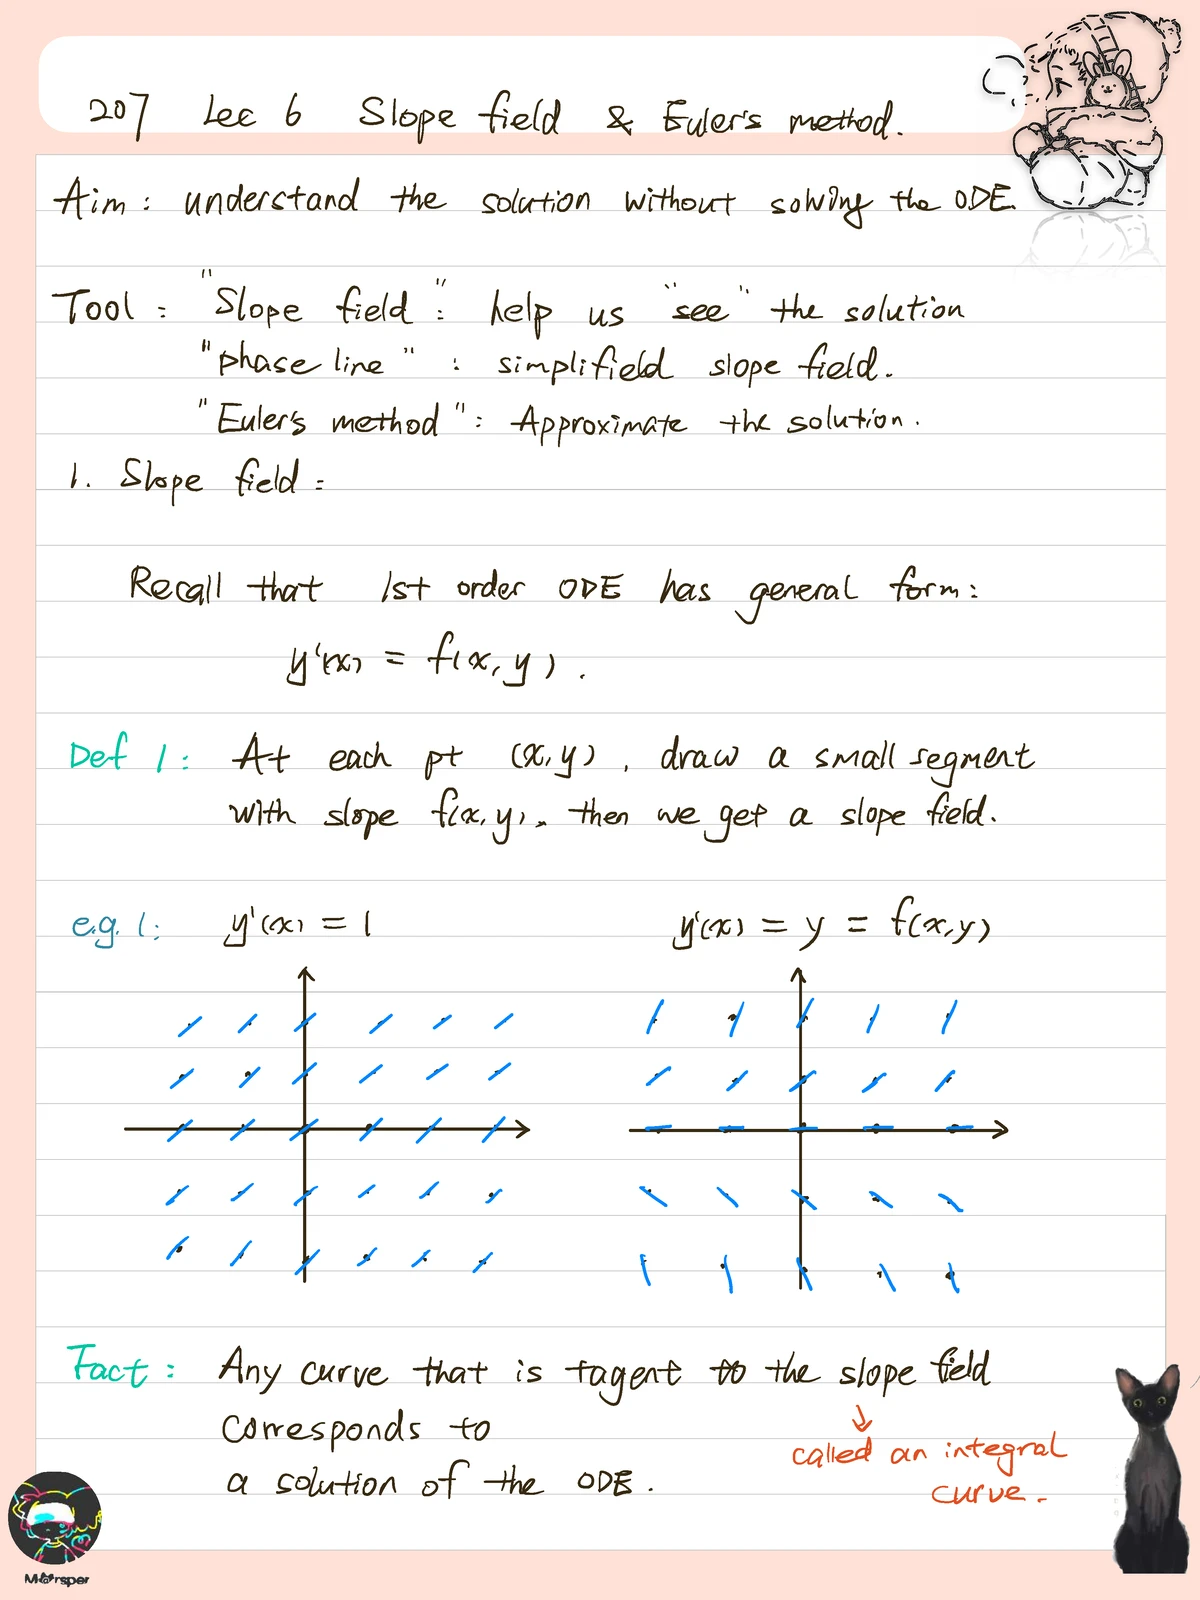 207 Lec 6 Slope field & Euler's method.
Aim: understand the solution without solving the ODE.
Tool: "Slope field": help us "see" the solution
"phase line": simplifield slope field.
"Euler's method": Approximate the solution.
1. Slope field:
Recall that 1st order ODE has general form:
y'(x) = f(x, y).
Def 1: At each pt (x, y), draw a small segment
with slope f(x, y), then we get a slope field.
e.g. 1: y'(x) = 1 y'(x) = y = f(x, y)
Fact: Any curve that is tagent to the slope field
corresponds to
called an integral
a solution of the ODE.
curve.